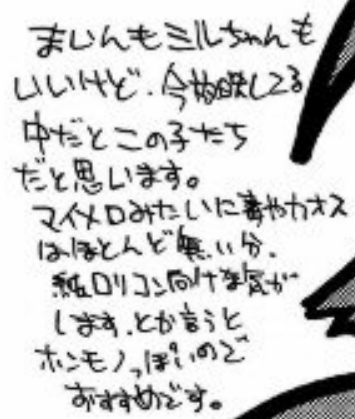 まいんもミルちゃんも
いいけど、今放映してる
中だとこの子たち
だと思います。
マイメロみたいに毒やカオス
はほとんど無い分、
純ロリコン向けな気が
します、とか言うと
ホンモノっぽいので
おすすめです。